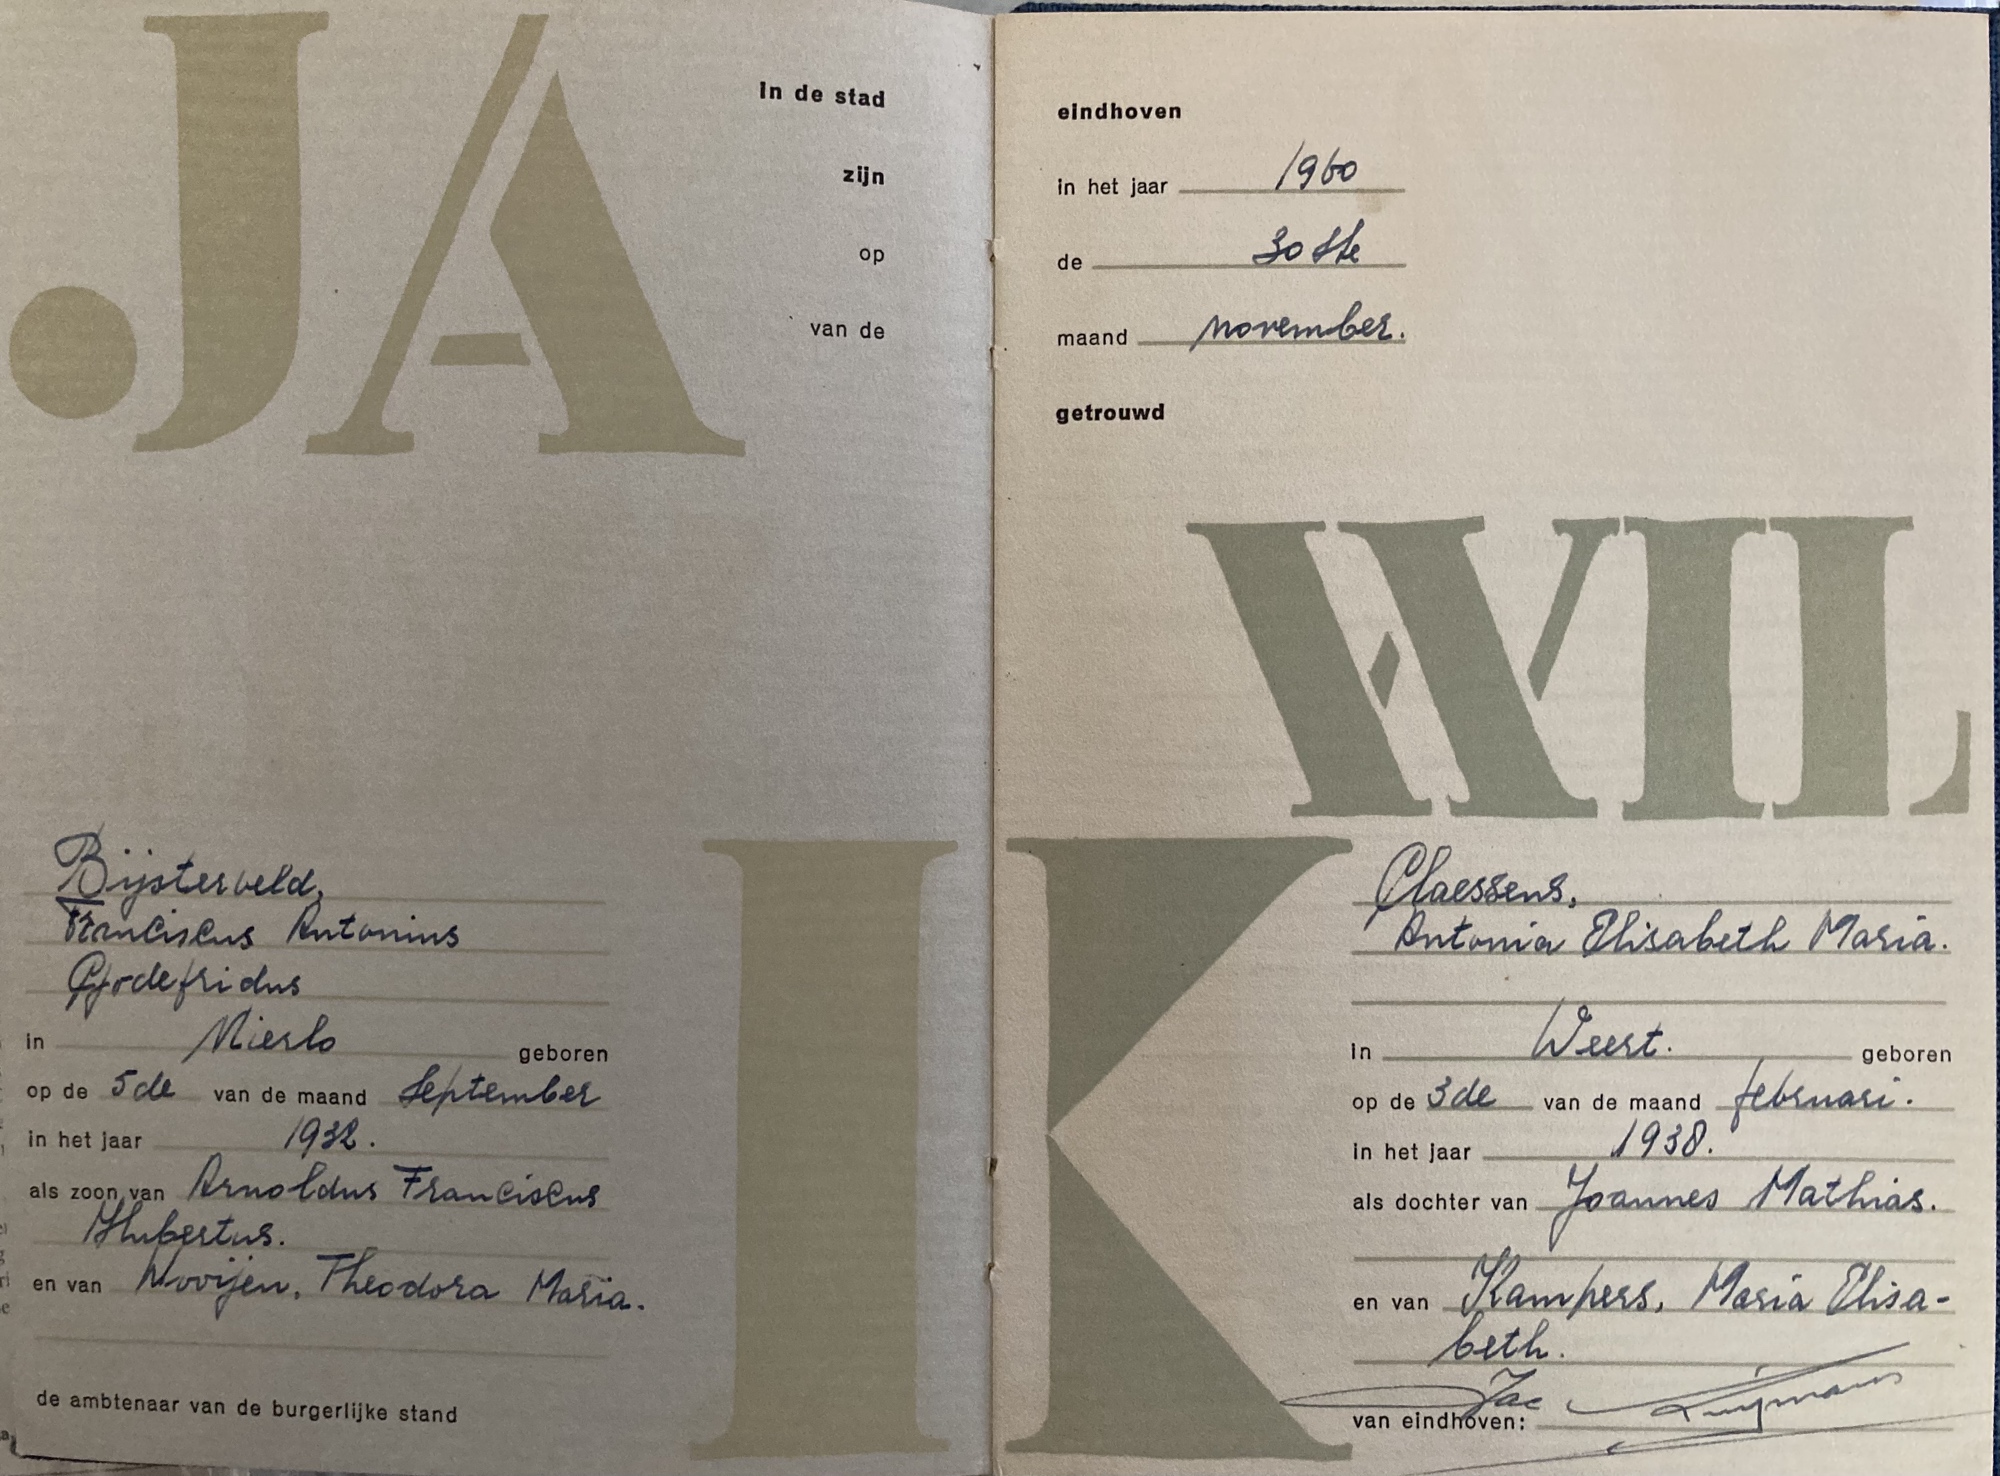 JA
in de stad eindhoven
zijn in het jaar 1960
op de 30ste
van de maand november.
getrouwd
WIL
IK
Bijsterveld,
Franciscus Antonius
Godefridus
in Mierlo geboren
op de 5de van de maand September
in het jaar 1932.
als zoon van Arnoldus Franciscus
Hubertus.
en van Nooijen, Theodora Maria.
de ambtenaar van de burgerlijke stand
Claessens,
Antonia Elisabeth Maria.
in Weert. geboren
op de 3de van de maand februari.
in het jaar 1938.
als dochter van Joannes Mathias.
en van Kampers, Maria Elisa-
beth.
van eindhoven: Jac